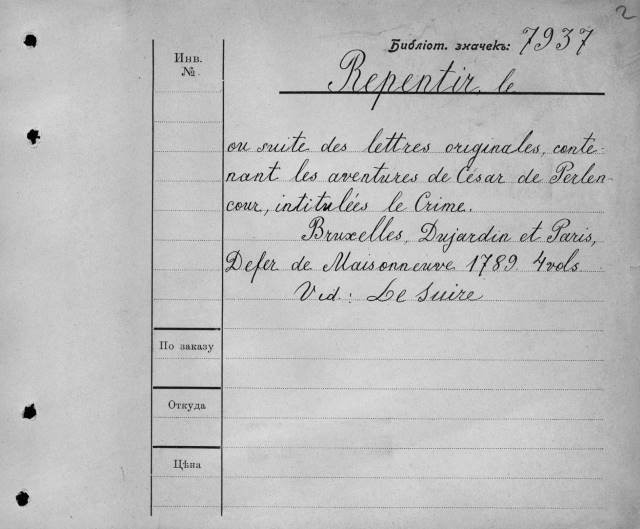 2
Библіот. значекъ: 7937
Инв.
№
Repentir, le
ou suite des lettres originales, conte-
nant les aventures de César de Perlen-
cour, intitulées le Crime.
Bruxelles, Dujardin et Paris,
Defer de Maisonneuve 1789. 4 vols
Vid.: Le Suire
По заказу
Откуда
Цѣна